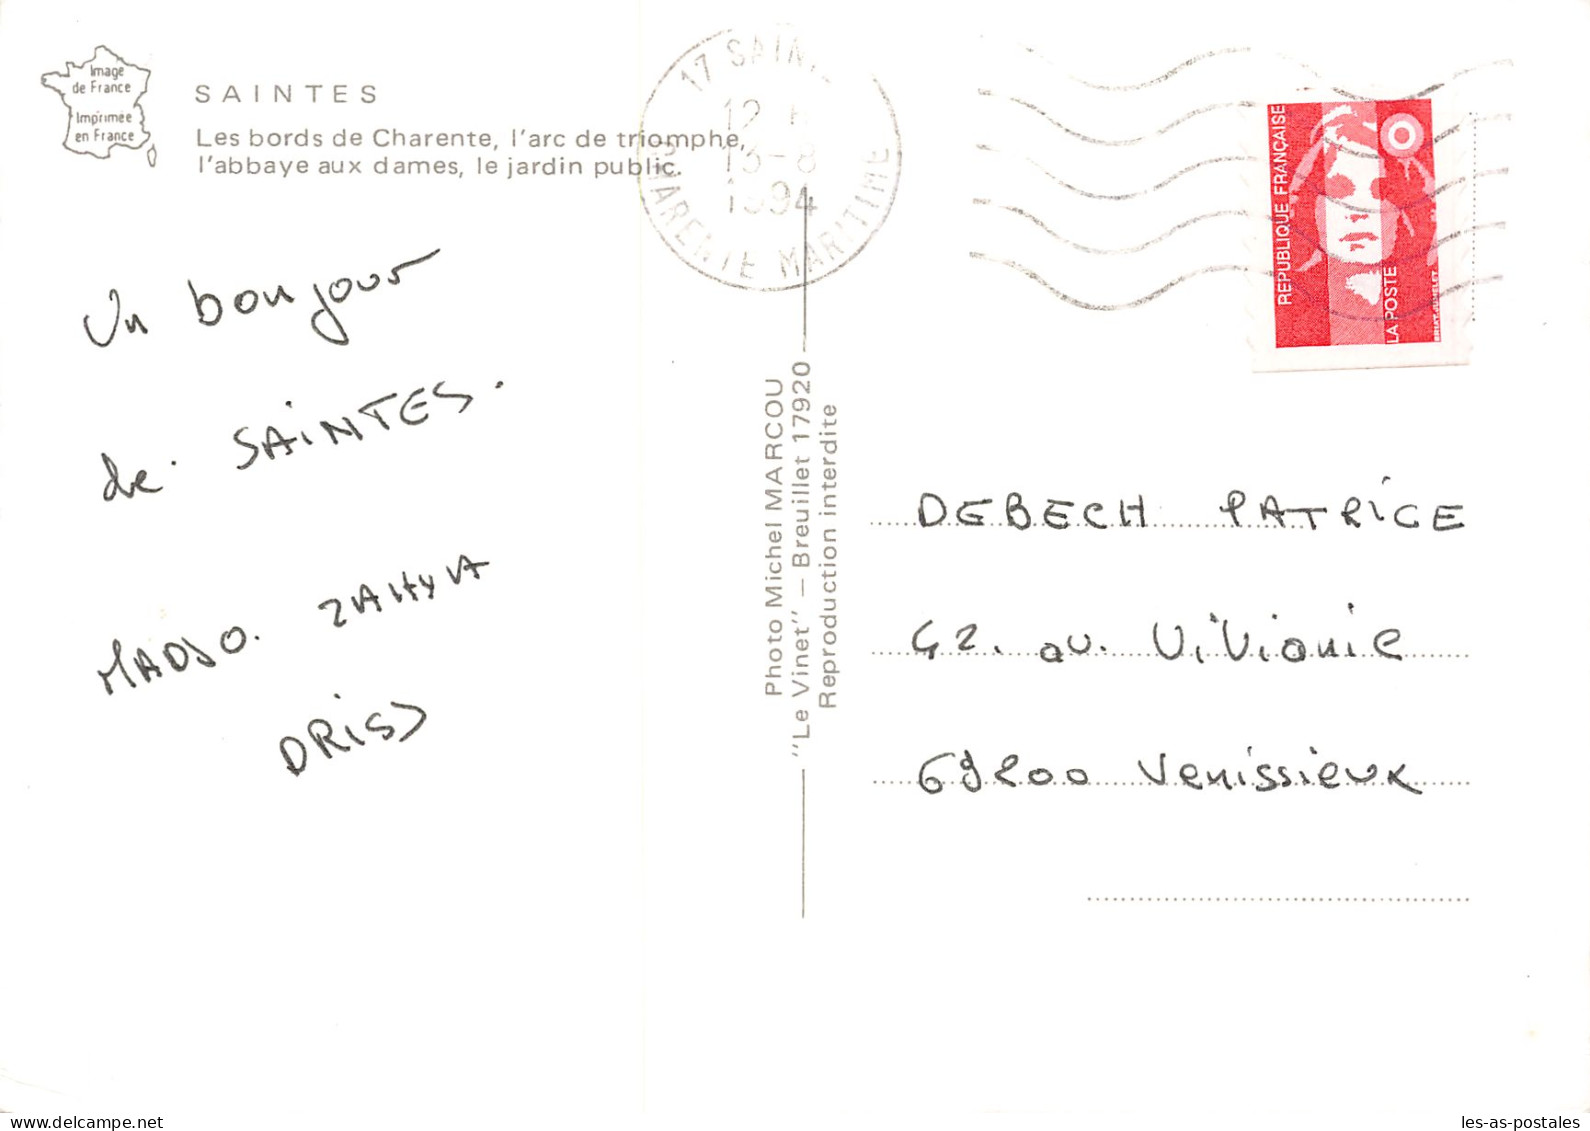 Image
de France
Imprimée
en France
SAINTES
Les bords de Charente, l'arc de triomphe,
l'abbaye aux dames, le jardin public.
17 SAIN
12 H
13-8
1994
CHARENTE MARITIME
REPUBLIQUE FRANÇAISE
LA POSTE
BRIAT JUMELET
Un bonjour
de SAINTES.
MADJO. ZAHYA
DRISS
Photo Michel MARCOU
"Le Vinet" — Breuillet 17920
Reproduction interdite
DEBECH PATRICE
42. av. ViVianie
69200 Venissieux
les-as-postales
delcampe.net